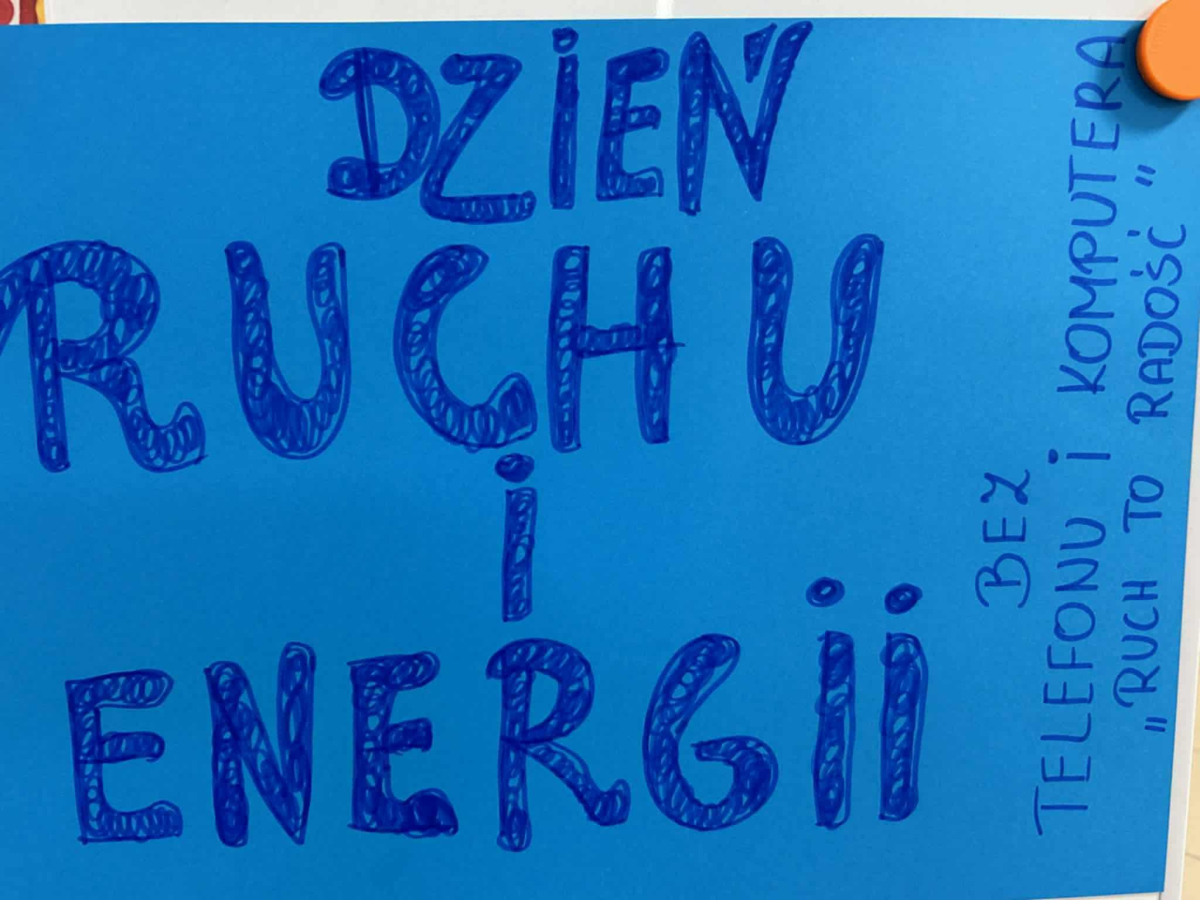 DZIEŃ
RUCHU
i
ENERGii
BEZ
TELEFONU i KOMPUTERA
„RUCH TO RADOŚĆ"